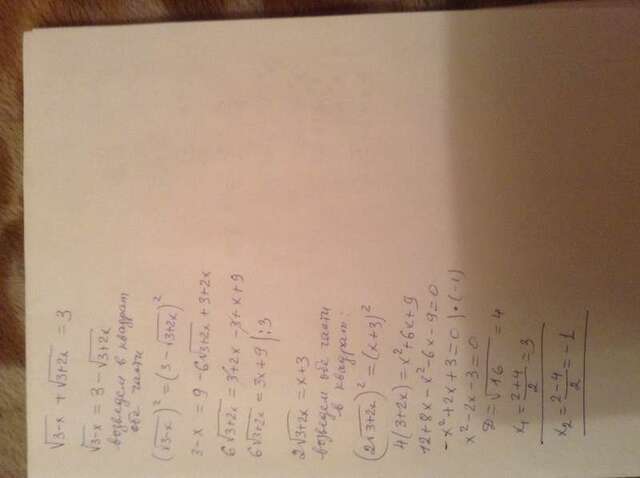 √3-x + √3+2x = 3
√3-x = 3 - √3+2x
возведем в квадрат
обе части
(√3-x)² = (3 - √3+2x)²
3-x = 9 - 6√3+2x + 3+2x
6√3+2x = 3+2x - 3+x+9
6√3+2x = 3x+9 |:3
2√3+2x = x+3
возведем обе части
в квадрат:
(2√3+2x)² = (x+3)²
4(3+2x) = x²+6x+9
12+8x-x²-6x-9=0
-x²+2x+3=0 |•(-1)
x²-2x-3=0
D=√16 = 4
x₁ = 2+4/2 = 3
x₂ = 2-4/2 = -1